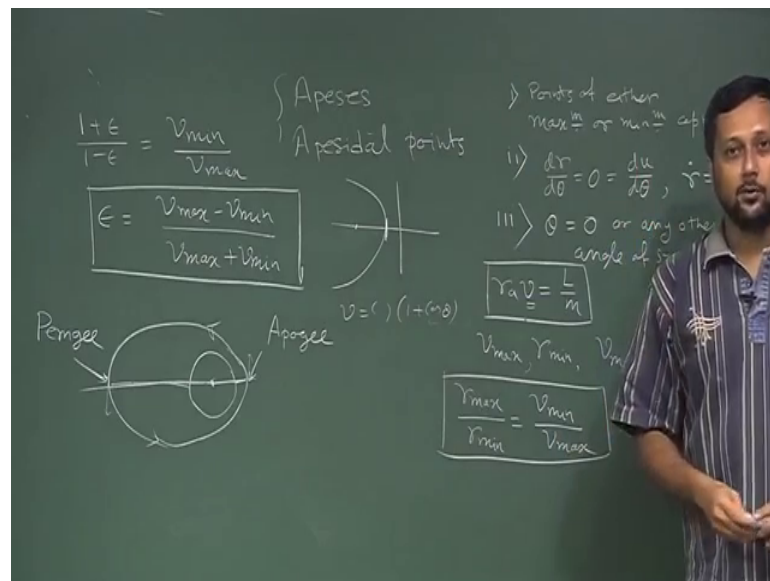 1+ϵ / 1-ϵ = Vmin / Vmax
ϵ = Vmax - Vmin / Vmax + Vmin
Apeses
Apesidal points
V = ( ) (1 + Cosθ)
Perigee
Apogee
i> Points of either
maxm or minm
ii> dr/dθ = 0 = du/dθ , ṙ =
III> θ = 0 or any othe
angle of
ra v = L/m
Vmax, rmin,
rmax / rmin = Vmin / Vmax